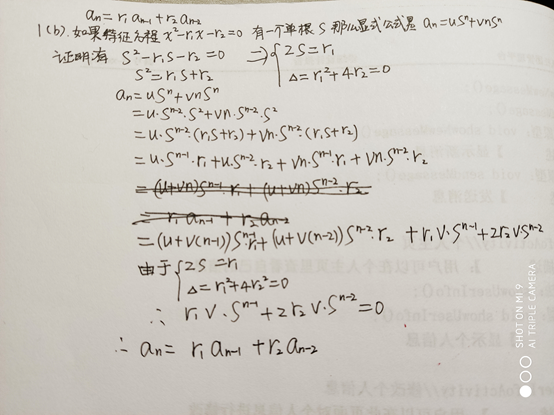 aₙ = r₁aₙ₋₁ + r₂aₙ₋₂
1(b). 如果特征方程 x²-r₁x-r₂=0 有一个单根 S 那么显式公式是 aₙ=uSⁿ+vnSⁿ
证明: 有 S²-r₁S-r₂=0 ⇒ { 2S=r₁
S²=r₁S+r₂ Δ=r₁²+4r₂=0
aₙ=uSⁿ+vnSⁿ
=u·Sⁿ⁻²·S²+vn·Sⁿ⁻²·S²
=u·Sⁿ⁻²(r₁S+r₂)+vn·Sⁿ⁻²(r₁S+r₂)
=u·Sⁿ⁻¹·r₁+u·Sⁿ⁻²·r₂+vn·Sⁿ⁻¹·r₁+vn·Sⁿ⁻²·r₂
=(u+vn)Sⁿ⁻¹·r₁+(u+vn)Sⁿ⁻²·r₂
=r₁aₙ₋₁+r₂aₙ₋₂
=(u+v(n-1))Sⁿ⁻¹r₁+(u+v(n-2))Sⁿ⁻²·r₂+r₁v·Sⁿ⁻¹+2r₂vSⁿ⁻²
由于 { 2S=r₁
Δ=r₁²+4r₂²=0
∴ r₁v·Sⁿ⁻¹+2r₂v·Sⁿ⁻²=0
∴ aₙ=r₁aₙ₋₁+r₂aₙ₋₂
SHOT ON MI 9
AI TRIPLE CAMERA